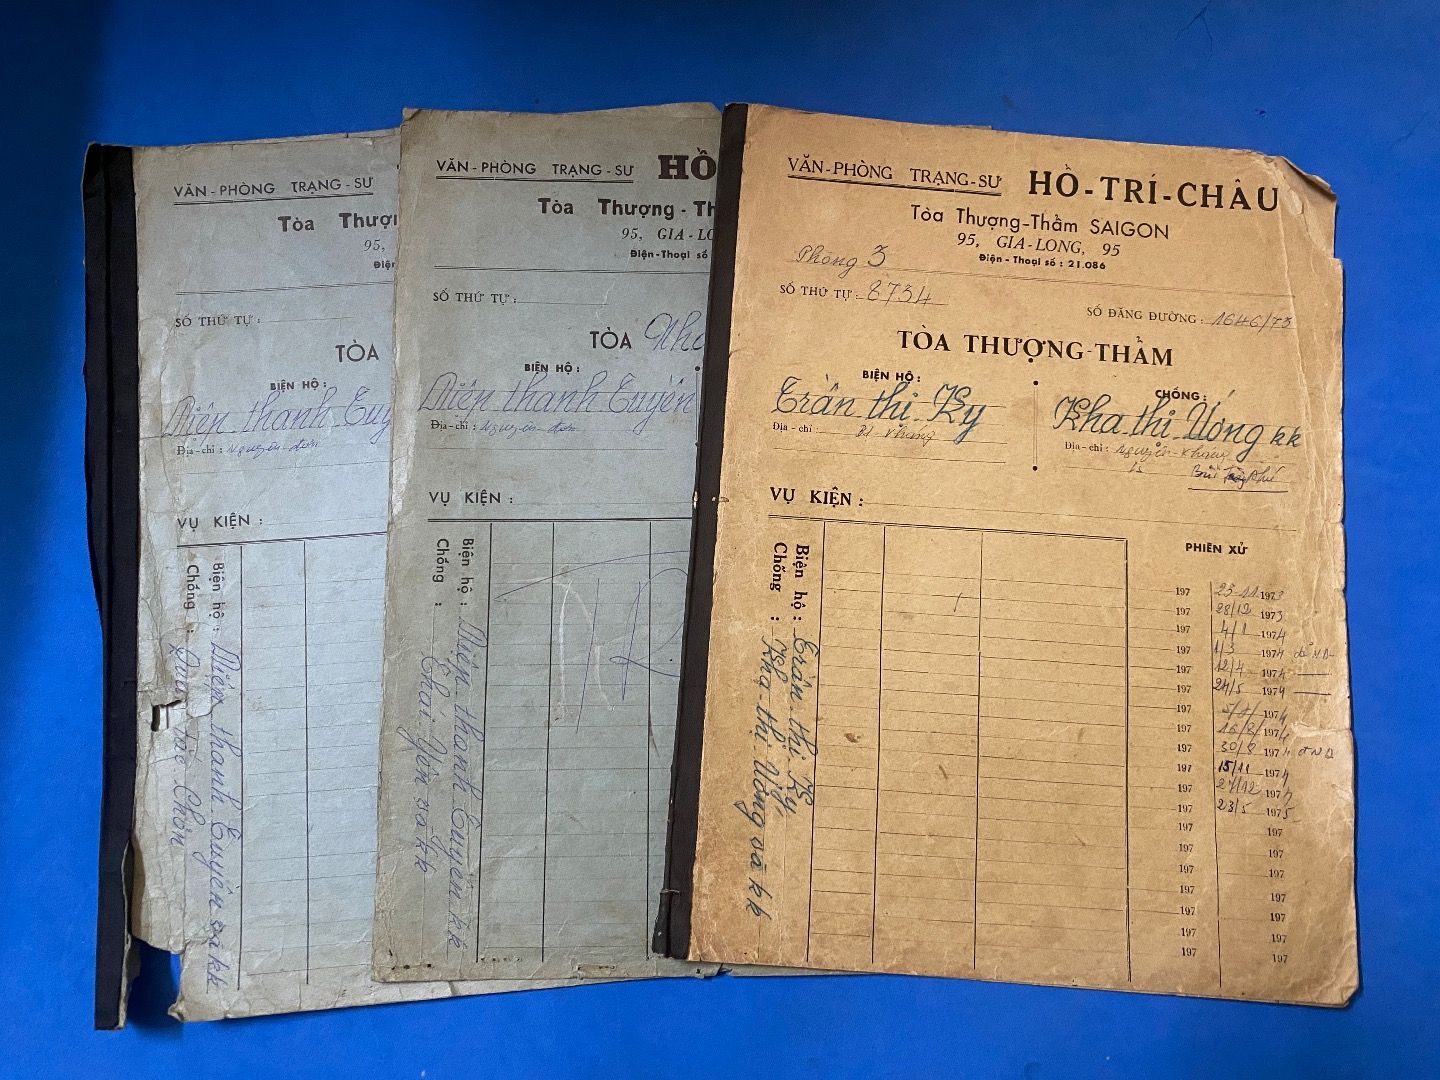 VĂN-PHÒNG TRẠNG-SƯ
Tòa Thượng
95,
Điện
SỐ THỨ TỰ :
TÒA
BIỆN HỘ :
Diệp thanh Tuy
Địa-chỉ : nguyên-đơn
VỤ KIỆN :
Biện hộ : Diệp thanh Tuyền và kk
Chống :
VĂN-PHÒNG TRẠNG-SƯ HỒ
Tòa Thượng-Th
95, GIA-LO
Điện-Thoại số
SỐ THỨ TỰ :
TÒA
BIỆN HỘ :
Diệp thanh Tuyền
Địa-chỉ : nguyên-đơn
VỤ KIỆN :
Biện hộ : Diệp thanh Tuyền kk
Chống : Thái Yên và kk
VĂN-PHÒNG TRẠNG-SƯ HỒ-TRÍ-CHÂU
Tòa Thượng-Thẩm SAIGON
95, GIA-LONG, 95
Điện-Thoại số : 21.086
Phòng 3
SỐ THỨ TỰ : 8734
SỐ ĐĂNG ĐƯỜNG : 1646/73
TÒA THƯỢNG-THẨM
BIỆN HỘ :
Trần thị Ky
Địa-chỉ :
CHỐNG :
Kha thị Uóng kk
Địa-chỉ :
Ls
VỤ KIỆN :
Biện hộ : Trần thị Ky
Chống : Kha-thị Uóng và kk
PHIÊN XỬ
197 23-11-1973
197 28/12 1973
197 4/1 1974
197 1/3 1974
197 12/4 1974
197 24/5 1974
197 1974
197 16/8/1974
197 30/8 1974
197 15/11 1974
197 27/12 1974
197 23/5 1975
197 197
197 197
197 197
197 197
197 197
197 197
197 197